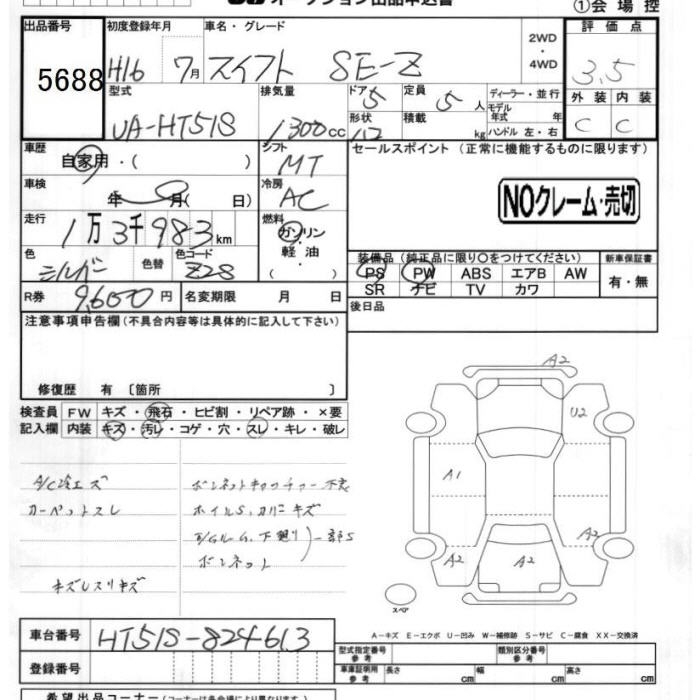 オークション出品申込書
①会場控
出品番号 初度登録年月 車名・グレード 2WD・4WD 評価点
5688 H16 7月 スイフト SE-Z 3.5
型式 排気量 ドア 5 定員 5人 ディーラー・並行 外装 内装
UA-HT51S 1300cc 形状 積載 kg モデル年式 年 C C
ハンドル 左・右
車歴 シフト セールスポイント (正常に機能するものに限ります)
自家用・( ) MT
車検 冷房
年 月(日) AC NOクレーム・売切
走行 燃料
1万3千983km ガソリン
軽油
( )
色 色替 色コード 装備品 (純正品に限り○をつけてください) 新車保証書
シルバー Z2S PS PW ABS エアB AW 有・無
R券 9,600円 名変期限 月 日 SR ナビ TV カワ
注意事項申告欄(不具合内容等は具体的に記入して下さい) 後日品
修復歴 有 〔箇所 〕
検査員 FW キズ・飛石・ヒビ割・リペア跡・×要
記入欄 内装 キズ・汚レ・コゲ・穴・スレ・キレ・破レ
A2
U2
A1
A2
A2
A2
A/C冷エズ ボンネットキャッチャー不良
カーペットスレ ホイルS、カリニキズ
ボンネット 一部S
キズレスリキズ
スペア
A-キズ E-エクボ U-凹み W-補修跡 S-サビ C-腐食 XX-交換済
車台番号 HT51S-824613
登録番号
型式指定番号 参考 類別区分番号 参考
車庫証明用 参考 長さ cm 幅 cm 高さ cm
希望出品コーナー(コーナーは各会場により異なります)